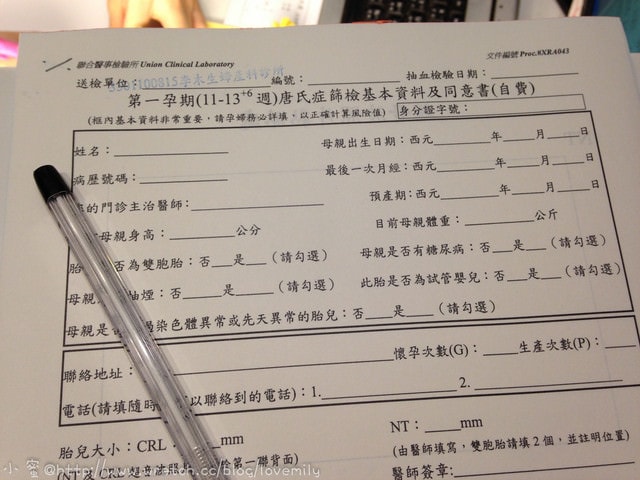 聯合醫事檢驗所 Union Clinical Laboratory
文件編號 Proc.8XRA043
送檢單位: 編號: 抽血檢驗日期:
第一孕期(11-13+6週)唐氏症篩檢基本資料及同意書(自費)
(框內基本資料非常重要，請孕婦務必詳填，以正確計算風險值) 身分證字號:
姓名: 母親出生日期:西元 年 月 日
病歷號碼: 最後一次月經:西元 年 月 日
的門診主治醫師: 預產期:西元 年 月 日
母親身高: 公分 目前母親體重: 公斤
胎 否為雙胞胎:否 是 (請勾選) 母親是否有糖尿病:否 是 (請勾選)
母親 抽煙:否 是 (請勾選) 此胎是否為試管嬰兒:否 是 (請勾選)
母親是 過染色體異常或先天異常的胎兒:否 是 (請勾選)
聯絡地址: 懷孕次數(G): 生產次數(P):
電話(請填隨時 以聯絡到的電話):1. 2.
胎兒大小:CRL: mm NT: mm
(由醫師填寫，雙胞胎請填2個，並註明位置)
(NT及CRL 第一聯背面) 醫師簽章: